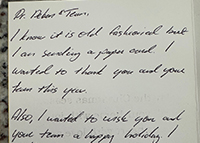 Dr. & Team,
I know it is old fashioned but
I am sending a paper card. I
wanted to thank you and your
team this year.
Also, I wanted to wish you and
your team a happy holiday I